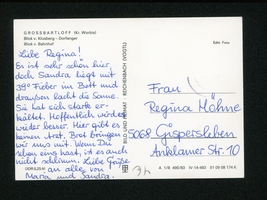 GROSSBARTLOFF (Kr. Worbis)
Blick v. Kluеberg - Dorfanger
Blick v. Bahnhof
Liebe Regina!
Es ist sehr schön hier,
doch Sandra liegt mit
39° Fieber im Bett und
draußen lacht die Sonne.
Sie hat sich stark er-
kältet. Hoffentlich wird es
wieder besser. Hier gibt es
keinen Arzt. Brot bringen
wir uns mit. Wenn Du
schon eins hast, ist es auch
nicht schlimm. Liebe Grüße
an alle von
Maria und Sandra.
BILD UND HEIMAT · REICHENBACH (VOGTL)
Echt Foto
Frau
Regina Möhne
5068 Gispersleben
Anklamer Str. 10